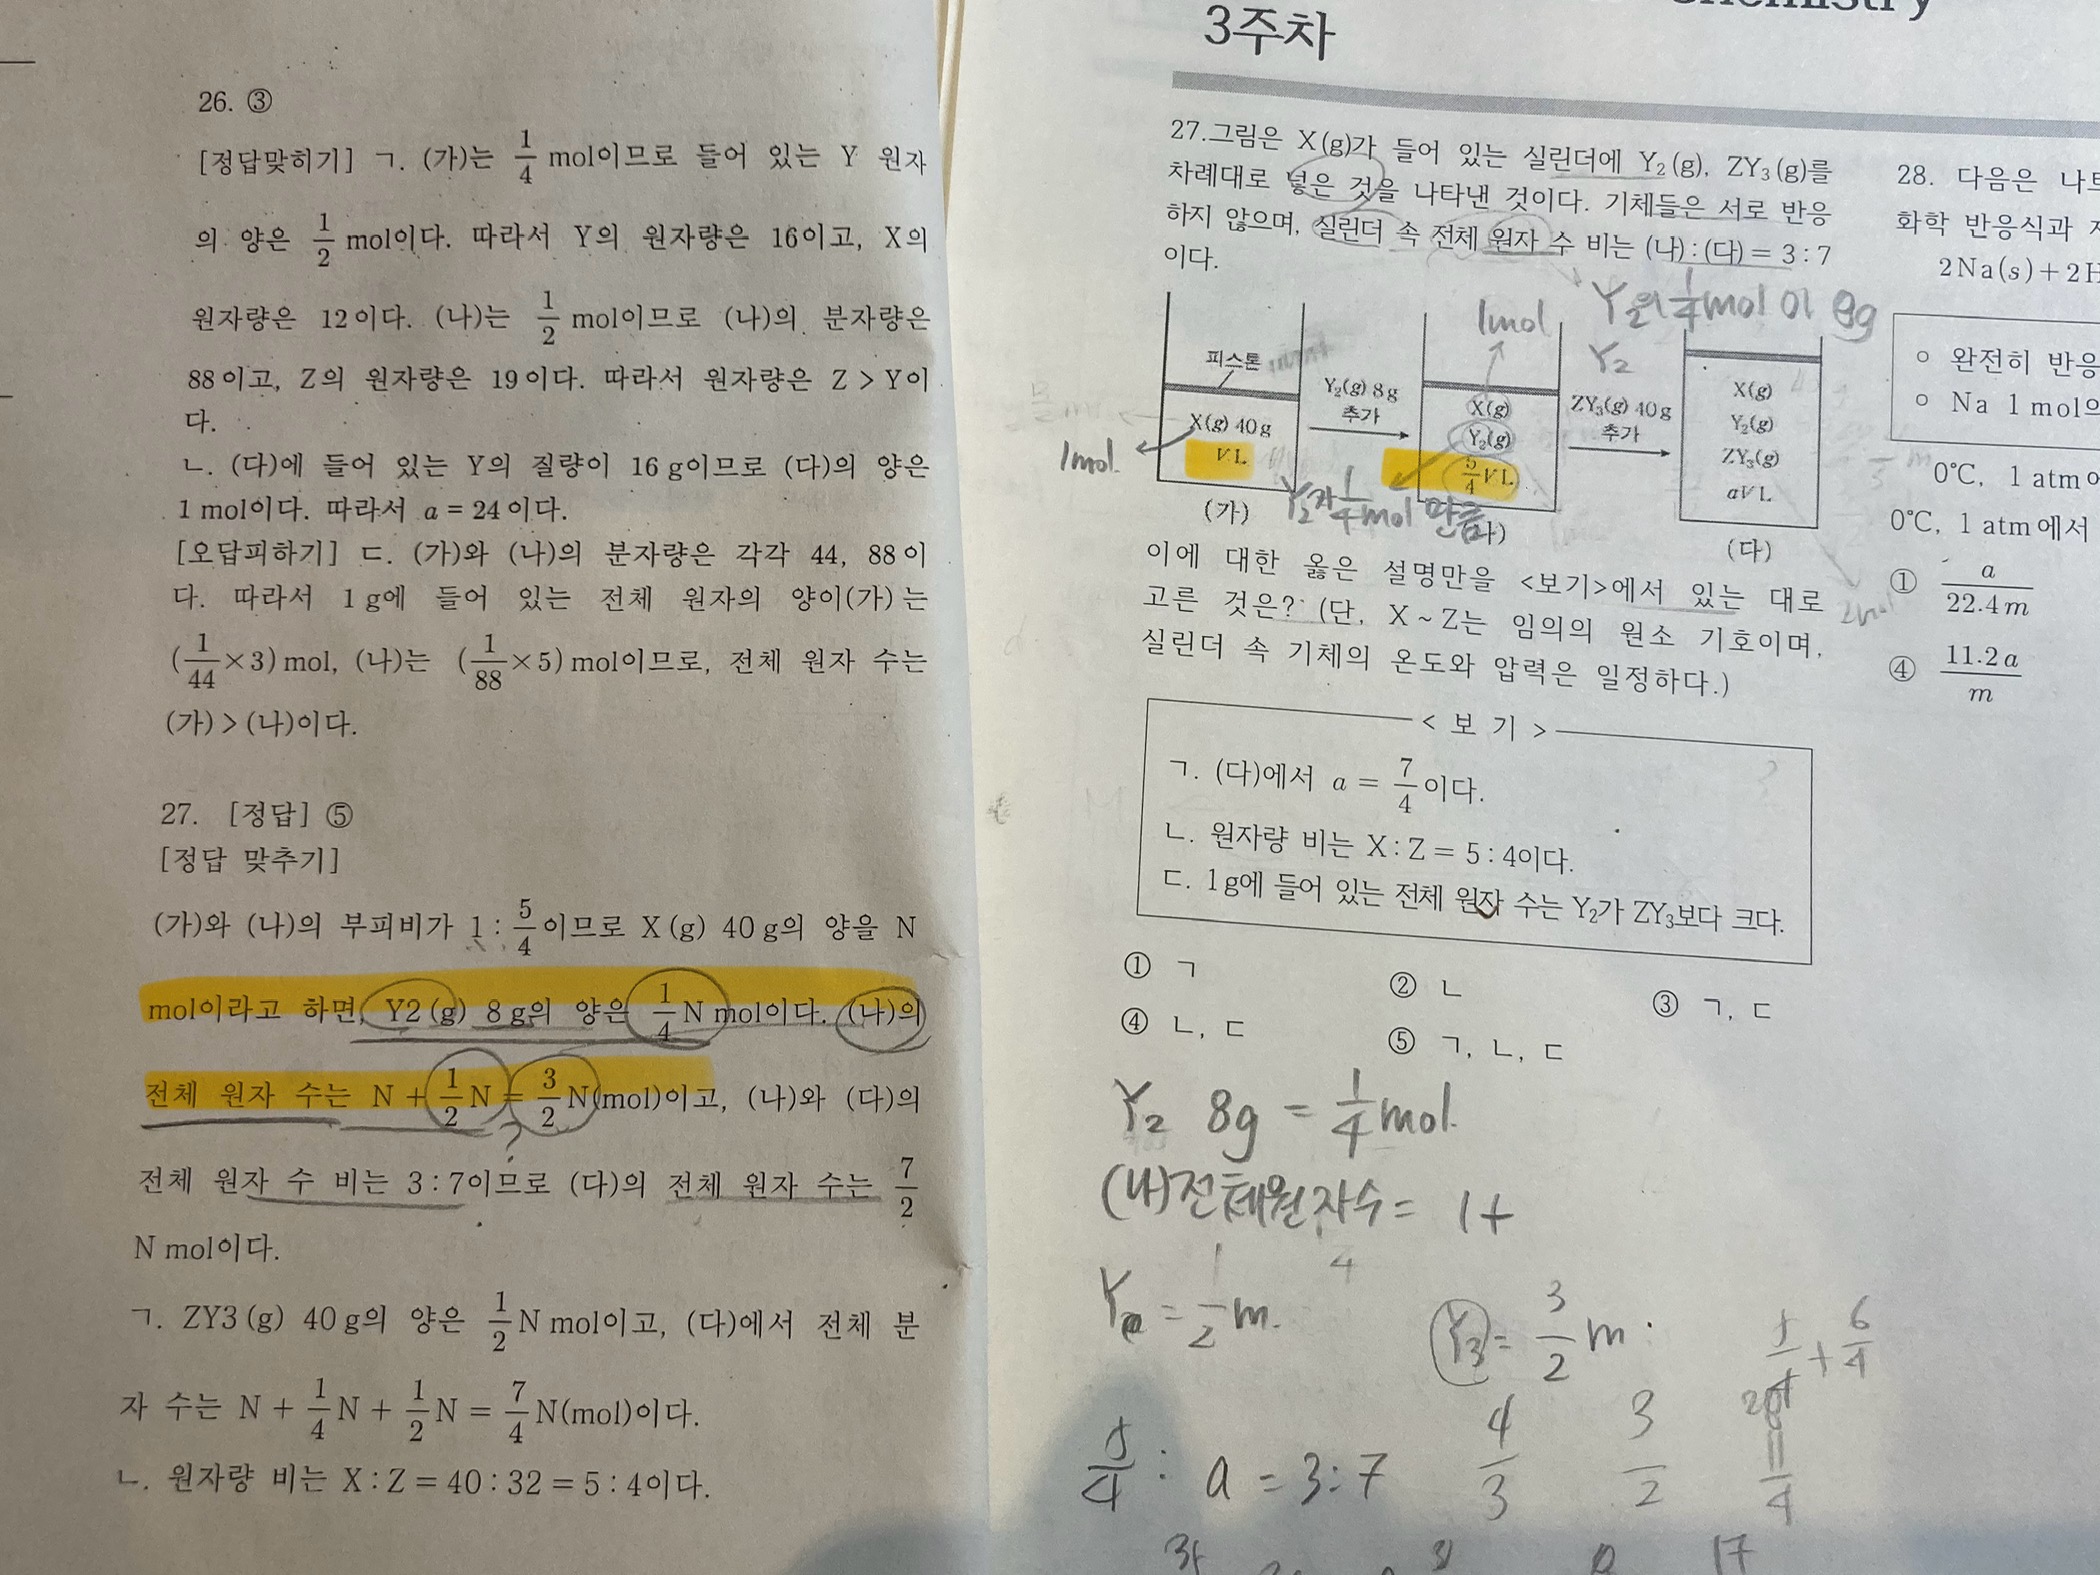 26. ③
[정답맞히기] ㄱ. (가)는 1/4 mol이므로 들어 있는 Y 원자
의 양은 1/2 mol이다. 따라서 Y의 원자량은 16이고, X의
원자량은 12이다. (나)는 1/2 mol이므로 (나)의 분자량은
88이고, Z의 원자량은 19이다. 따라서 원자량은 Z > Y이
다.
ㄴ. (다)에 들어 있는 Y의 질량이 16 g이므로 (다)의 양은
1 mol이다. 따라서 a = 24이다.
[오답피하기] ㄷ. (가)와 (나)의 분자량은 각각 44, 88이
다. 따라서 1 g에 들어 있는 전체 원자의 양이(가)는
(1/44×3) mol, (나)는 (1/88×5) mol이므로, 전체 원자 수는
(가) > (나)이다.
27. [정답] ⑤
[정답 맞추기]
(가)와 (나)의 부피비가 1 : 5/4이므로 X(g) 40 g의 양을 N
mol이라고 하면, Y2(g) 8 g의 양은 1/4 N mol이다. (나)의
전체 원자 수는 N + 1/2 N = 3/2 N(mol)이고, (나)와 (다)의
?
전체 원자 수 비는 3 : 7이므로 (다)의 전체 원자 수는 7/2
N mol이다.
ㄱ. ZY3(g) 40 g의 양은 1/2 N mol이고, (다)에서 전체 분
자 수는 N + 1/4 N + 1/2 N = 7/4 N(mol)이다.
ㄴ. 원자량 비는 X : Z = 40 : 32 = 5 : 4이다.
Chemistry
3주차
27.그림은 X(g)가 들어 있는 실린더에 Y₂(g), ZY₃(g)를
차례대로 넣은 것을 나타낸 것이다. 기체들은 서로 반응
하지 않으며, 실린더 속 전체 원자 수 비는 (나) : (다) = 3 : 7
이다.
Y₂의 1/4 mol 이 8g
1mol
Y₂
피스톤
X(g) 40 g
V L
(가)
1mol
Y₂(g) 8 g
추가
Y₂가 1/4 mol 만큼
X(g)
Y₂(g)
5/4 V L
나)
ZY₃(g) 40 g
추가
X(g)
Y₂(g)
ZY₃(g)
aV L
(다)
이에 대한 옳은 설명만을 <보기>에서 있는 대로
고른 것은? (단, X ~ Z는 임의의 원소 기호이며,
실린더 속 기체의 온도와 압력은 일정하다.)
< 보 기 >
ㄱ. (다)에서 a = 7/4이다.
ㄴ. 원자량 비는 X : Z = 5 : 4이다.
ㄷ. 1 g에 들어 있는 전체 원자 수는 Y₂가 ZY₃보다 크다.
① ㄱ
② ㄴ
③ ㄱ, ㄷ
④ ㄴ, ㄷ
⑤ ㄱ, ㄴ, ㄷ
Y₂ 8g = 1/4 mol
(나)전체원자수 = 1+
= 1/2 m.
Y₃ = 3/2 m
5/4 + 6/4
5/4 : a = 3 : 7
4/3
3/2
11/4
17
28. 다음은 나트
화학 반응식과
2Na(s) + 2H
○ 완전히 반응
○ Na 1 mol으
0℃, 1 atm에
0℃, 1 atm에서
① a/22.4m
2mol
④ 11.2a/m